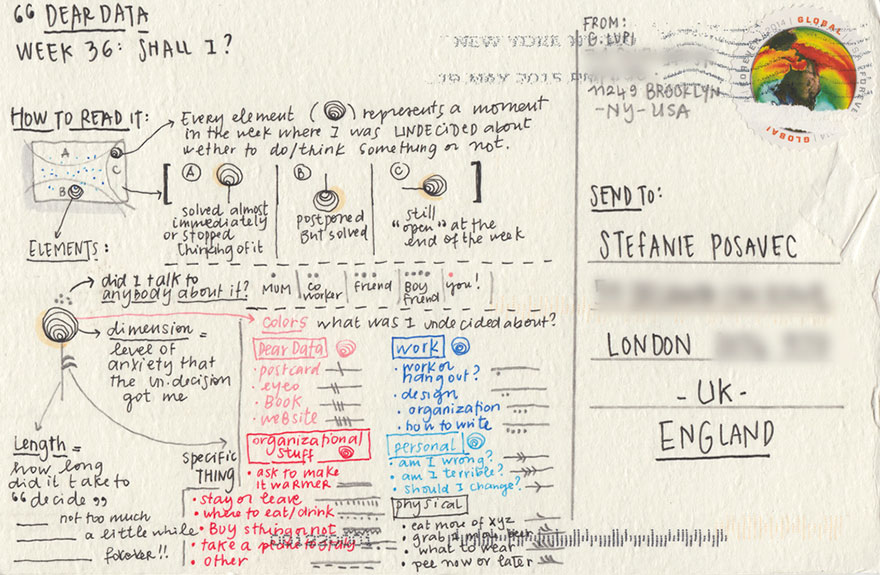 “ DEAR DATA
WEEK 36: SHALL I?
HOW TO READ IT:
Every element ( ) represents a moment
in the week where I was UNDECIDED about
wether to do/think something or not.
A
B
C
A
solved almost
immediately
or stopped
thinking of it
B
postponed
But solved
C
still
"open" at the
end of the week
ELEMENTS:
did I talk to
anybody about it?
MUM
CO
worker
friend
Boy
friend
you!
dimension =
level of
anxiety that
the un.decision
got me
Length =
how long
did it take to
“decide”
not too much
a little while
forever!!
specific
THING
colors what was I undecided about?
Dear Data
• postcard
• eyeo
• Book
• website
work
• work or
hang out?
• design
• organization
• how to write
organizational
stuff
• ask to make
it warmer
• stay or leave
• where to eat/drink
• Buy sthing or not
• take a plane to Italy
• other
personal
• am I wrong?
• am I terrible?
• should I change?
physical
• eat more of xyz
• grab a
• what to wear
• pee now or later
FROM:
G. LUPI
11249 BROOKLYN
-NY-USA
NEW YORK NY
19 MAY 2015 PM
GLOBAL
FOREVER
2014
USA
FOREVER
GLOBAL
SEND TO:
STEFANIE POSAVEC
LONDON
- UK -
ENGLAND